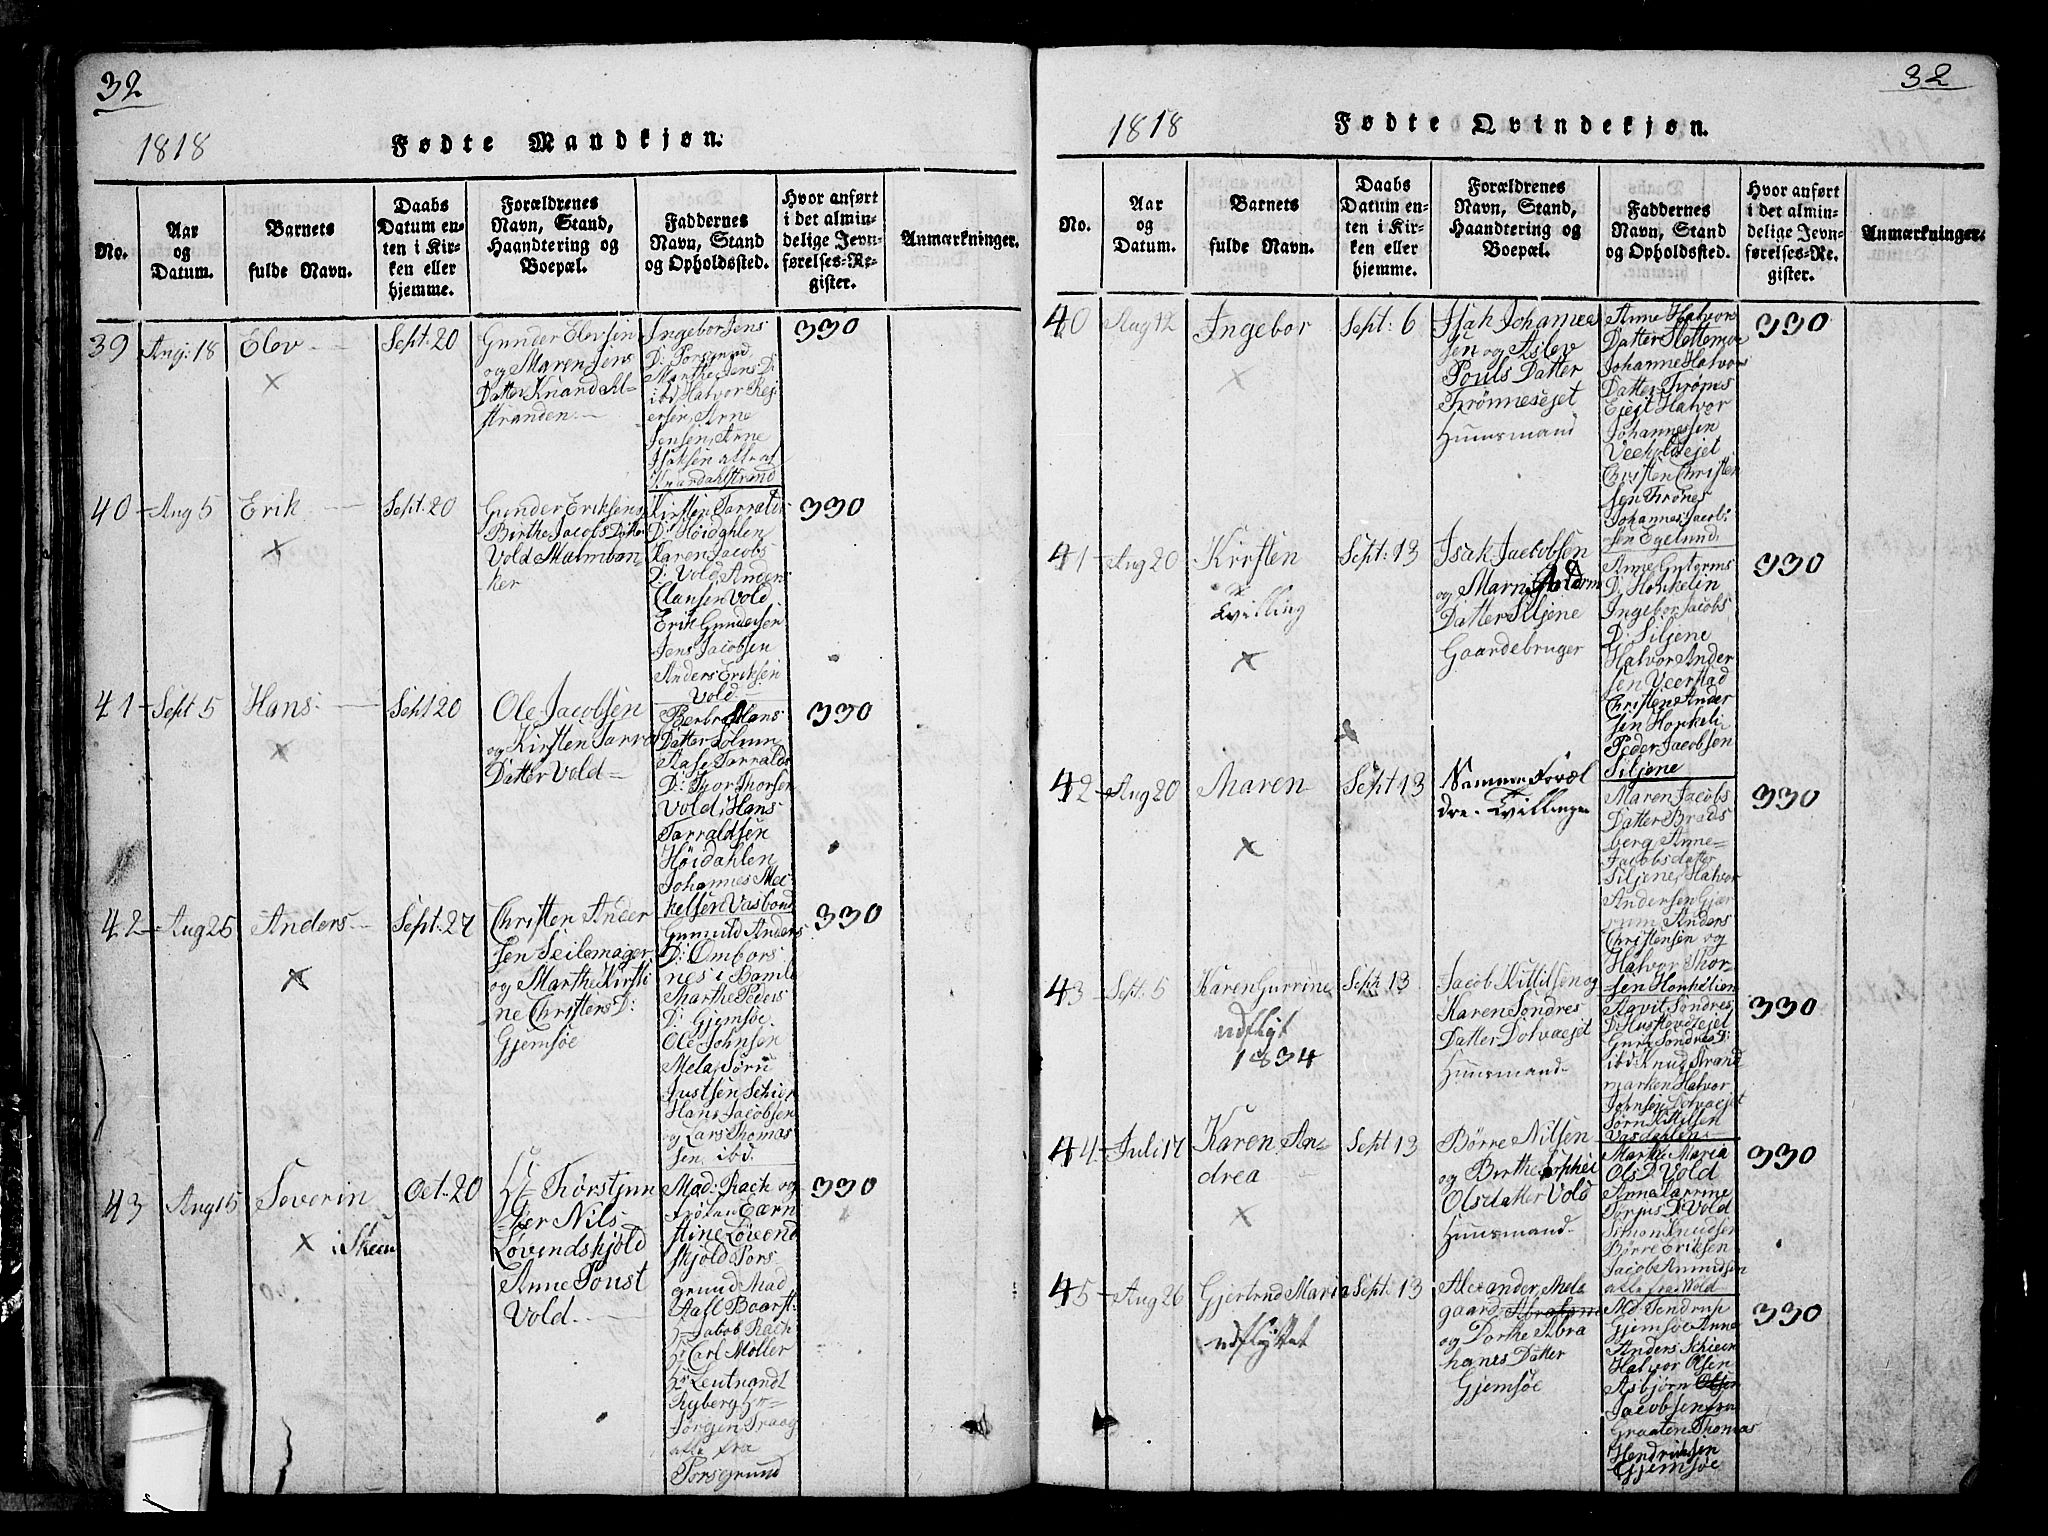 32
1818
Fødte Mandkjøn.
No.
Aar
og
Datum.
Barnets
fulde Navn.
Daabs
Datum en-
ten i Kir-
ken eller
hjemme.
Forældrenes
Navn, Stand,
Haandtering og
Boepæl.
Faddernes
Navn, Stand
og Opholdssted.
Hvor anført
i det almin-
delige Jevn-
førelses-Re-
gister.
Anmærkninger.
39
Aug: 18
Elev
Sept. 20
Gunder Elevsen
og Maren Jens
Datter Knardahl-
stranden.
Ingebor Jens
D: Porsgrund
Marthe Jens D:
ibd Halvor Rej-
ersen, Arne
Jensen, Arne
Isaksen alle af
Knardahlstrand
330
40
Aug 5
Erik
Sept. 20
Gunder Eriksens
Birthe Jacobs Datter
Vold Malmban-
ker
Kirsten Tarralds
D: Höidahlen
Karen Jacobs
D: Vold Anders
Clausen Vold
Erik Gundersen
Jens Jacobsen
Anders Eriksen
Vold
330
41
Sept 5
Hans
Sept 20
Ole Jacobsen
og Kirsten Tarra
Datter Vold
Berbr Hans
Datter Solum
Aase Tarralds
D: Thor Thorsen
Vold, Hans
Tarraldsen
Höidahlen
Johannes Mek-
kelsen Vasbond
330
42
Aug 25
Anders
Sept. 27
Christen Ander
sen Seilemager
og Marthe Kirsti
ne Christens D:
Gjemsøe
Gunnild Anders
D: Ombors
nes i Bamle
Marthe Peders
D: Gjemsøe
Ole Johnsen
Mela, Sørn
Justsen Schien
Hans Jacobsen
og Lars Thomas
sen, ibd.
330
43
Aug 15
Severin
i Skeen
Oct. 20
Hr Torstjun
ker Nils
Løvendskjold
Anne Poust
Vold.
Mad: Rach og
frøken Eærn
stine Løvend
skjold Pors
grund Mad
Aall Boarst.
Hr Jabob Rach
Hr Carl Möller
Hr Leutnandt
Ryberg Hr
Jørgen Traag
alle fra
Porsegrund
330
32
1818
Fødte Qvindekjøn.
No.
Aar
og
Datum.
Barnets
fulde Navn.
Daabs
Datum en-
ten i Kir-
ken eller
hjemme.
Forældrenes
Navn, Stand,
Haandtering og
Boepæl.
Faddernes
Navn, Stand
og Opholdssted.
Hvor anført
i det almin-
delige Jevn-
førelses-Re-
gister.
Anmærkninger.
40
Aug 12
Ingebor
Sept: 6
Isak Johannes
sen og Aslev
Pouls Datter
Trönneseiet
Huusmand
Anne Halvors
Datter Slettemoe
Johanne Halvors
Datter Trönes
Eiejt Halvor
Johannessen
Veeholdtejet
Christen Christen
sen Trönes
Johannes Jacob
sen Egelund
330
41
Aug 20
Kirsten
Tvilling
Sept: 13
Isak Jacobsen
og Marni Guldorm
Datter Siljene
Gaardebruger
Anne Gutorms
D: Honkelin
Ingebor Jacobs
D: Siljene
Halvor Ander
sen Veerstad
Christen Ander
sen Honkeli
Peder Jacobsen
Siljene
330
42
Aug 20
Maren
Sept 13
Samme Foræl
dre. Tvillinger
Maren Jacobs
Datter Brads
berg Anne
Jacobsdatter
Siljene, Halvor
Andersen Gjær
rum Anders
Christensen og
Halvor Thor-
sen Honkelien
330
43
Sept. 5
Karen Gurrine
udflyt
1834
Sept. 13
Jacob Kittilsen og
Karen Söndres
Datter Dolvaejet
Huusmand
Aavit Sondres
D: Hustovdejet
Guro Sondres D:
ibd: Knud Strand
marken Halvor
Johnsen Dolvaejet
Sørn Kittilsen
Vasdahlen
330
44
Juli 17
Karen An-
drea
Sept 13
Börre Nilsen
og Birthe Sophei
Olsdatter Vold
Huusmand
Marthe Maria
Ols D. Vold
Anna Karrine
Torjus D: Vold
Simon Knudsen
Börre Eriksen
Jacob Amundsen
alle fra Vold
330
45
Aug 26
Gjertrud Maria
udflyttet
Sept. 13
Alexander Mela
gaard Abraham
og Dorthe Abra
hams Datter
Gjemsöe
Md. Tendrup
Gjemsöe Anne
Anders Schieen
Halvor Olsen
Asbjørn Olsen
Jacobsen fra
Graaten Thomas
Hendriksen
Gjemsøe
330